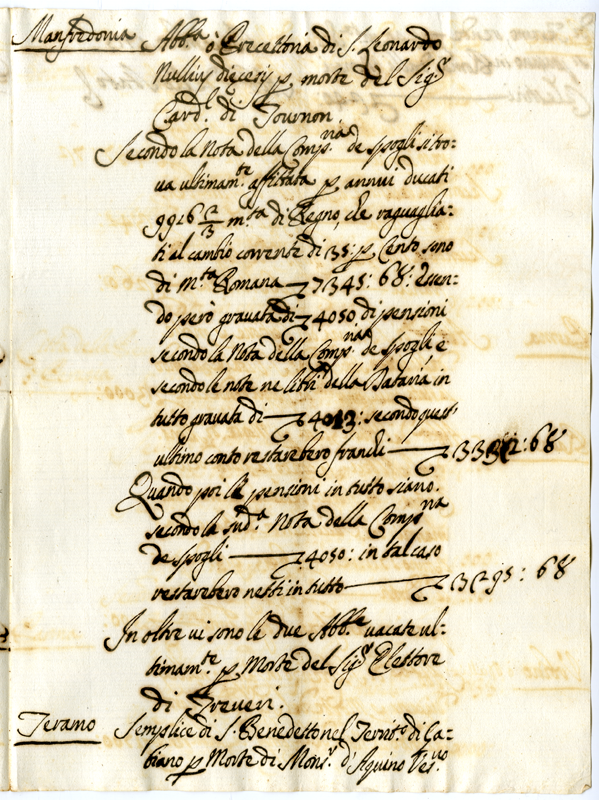 Manfredonia Abb.a ò Precettoria di S. Leonardo
Nullius diecesis p morte del Sig.r
Card.l di Tournon.
Secondo la Nota della Comp.na de spogli si tro:
va ultimam.te affittata p annui ducati
9916 2/3 m.ta di Regno, che raguaglia:
ti al cambio corrente di 35: p Cento sono
di m.ta Romana — 7345: 68: Essen:
do però gravata di — 4050 di pensioni
secondo la Nota della Comp.na de spogli, e
secondo le note ne libri della Dataria in
tutto gravata di — 4013: secondo quest'
ultimo conto restarebero franchi — 3332: 68
Quando poi le pensioni in tutto siano.
secondo la sud.a Nota della Comp.na
de spogli — 4050: in tal caso
restarebero netti in tutto — 3295: 68
In oltre vi sono le due Abb.e vacate ul:
timam.te p Morte del Sig.r Elettore
di Treveri.
Teramo Semplice di S. Benedetto nel Territ.o di Ca:
biano p Morte di Mons.r d'Aquino Ves.vo